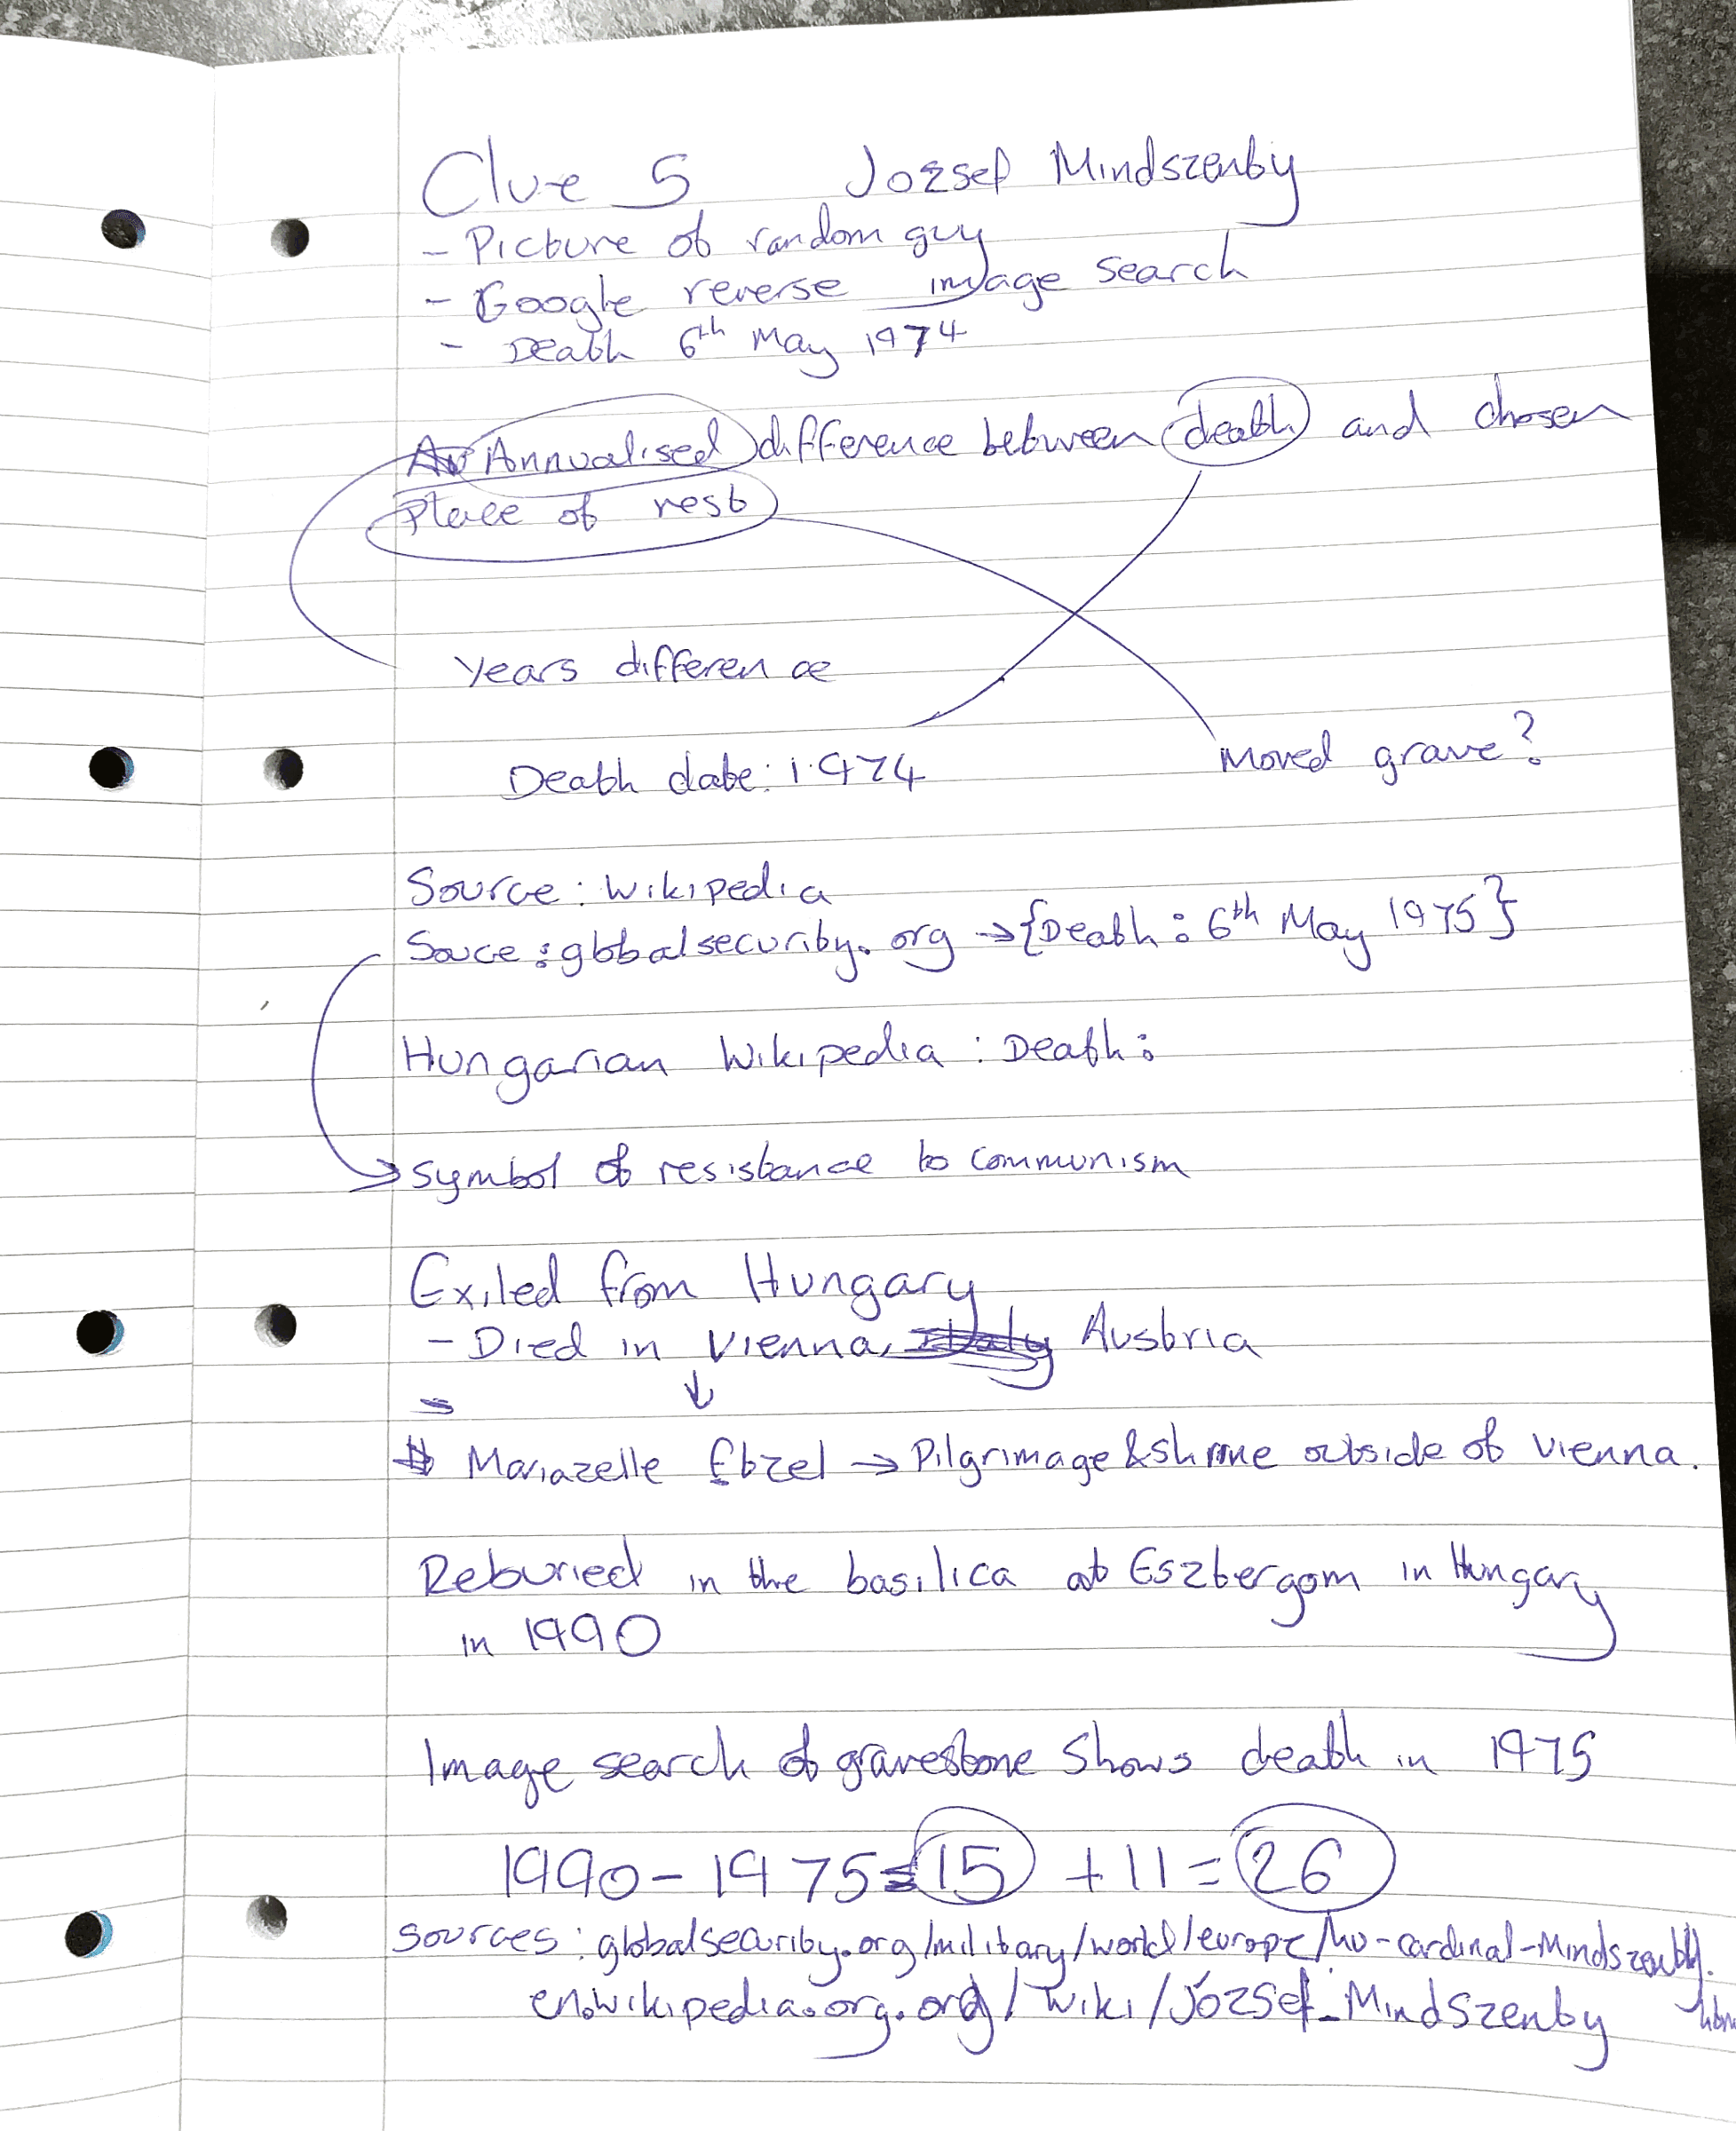 Clue 5 Jozsef Mindszenty
- Picture of random guy
- Google reverse image search
- Death 6th May 1974
Annualised difference between death and chosen
Place of rest
Years difference
Death date: 1974
Moved grave?
Source: Wikipedia
Souce: globalsecurity.org → {Death: 6th May 1975}
Hungarian Wikipedia: Death:
→ symbol of resistance to communism
Exiled from Hungary
- Died in Vienna, Austria
↓
Mariazelle → Pilgrimage & shrine outside of Vienna.
Reburied in the basilica at Esztergom in Hungary
in 1990
Image search of gravestone shows death in 1975
1990 - 1975 = 15 + 11 = 26
Sources: globalsecurity.org/military/world/europe/hu-cardinal-Mindszenty.
en.wikipedia.org.org/wiki/József_Mindszenty